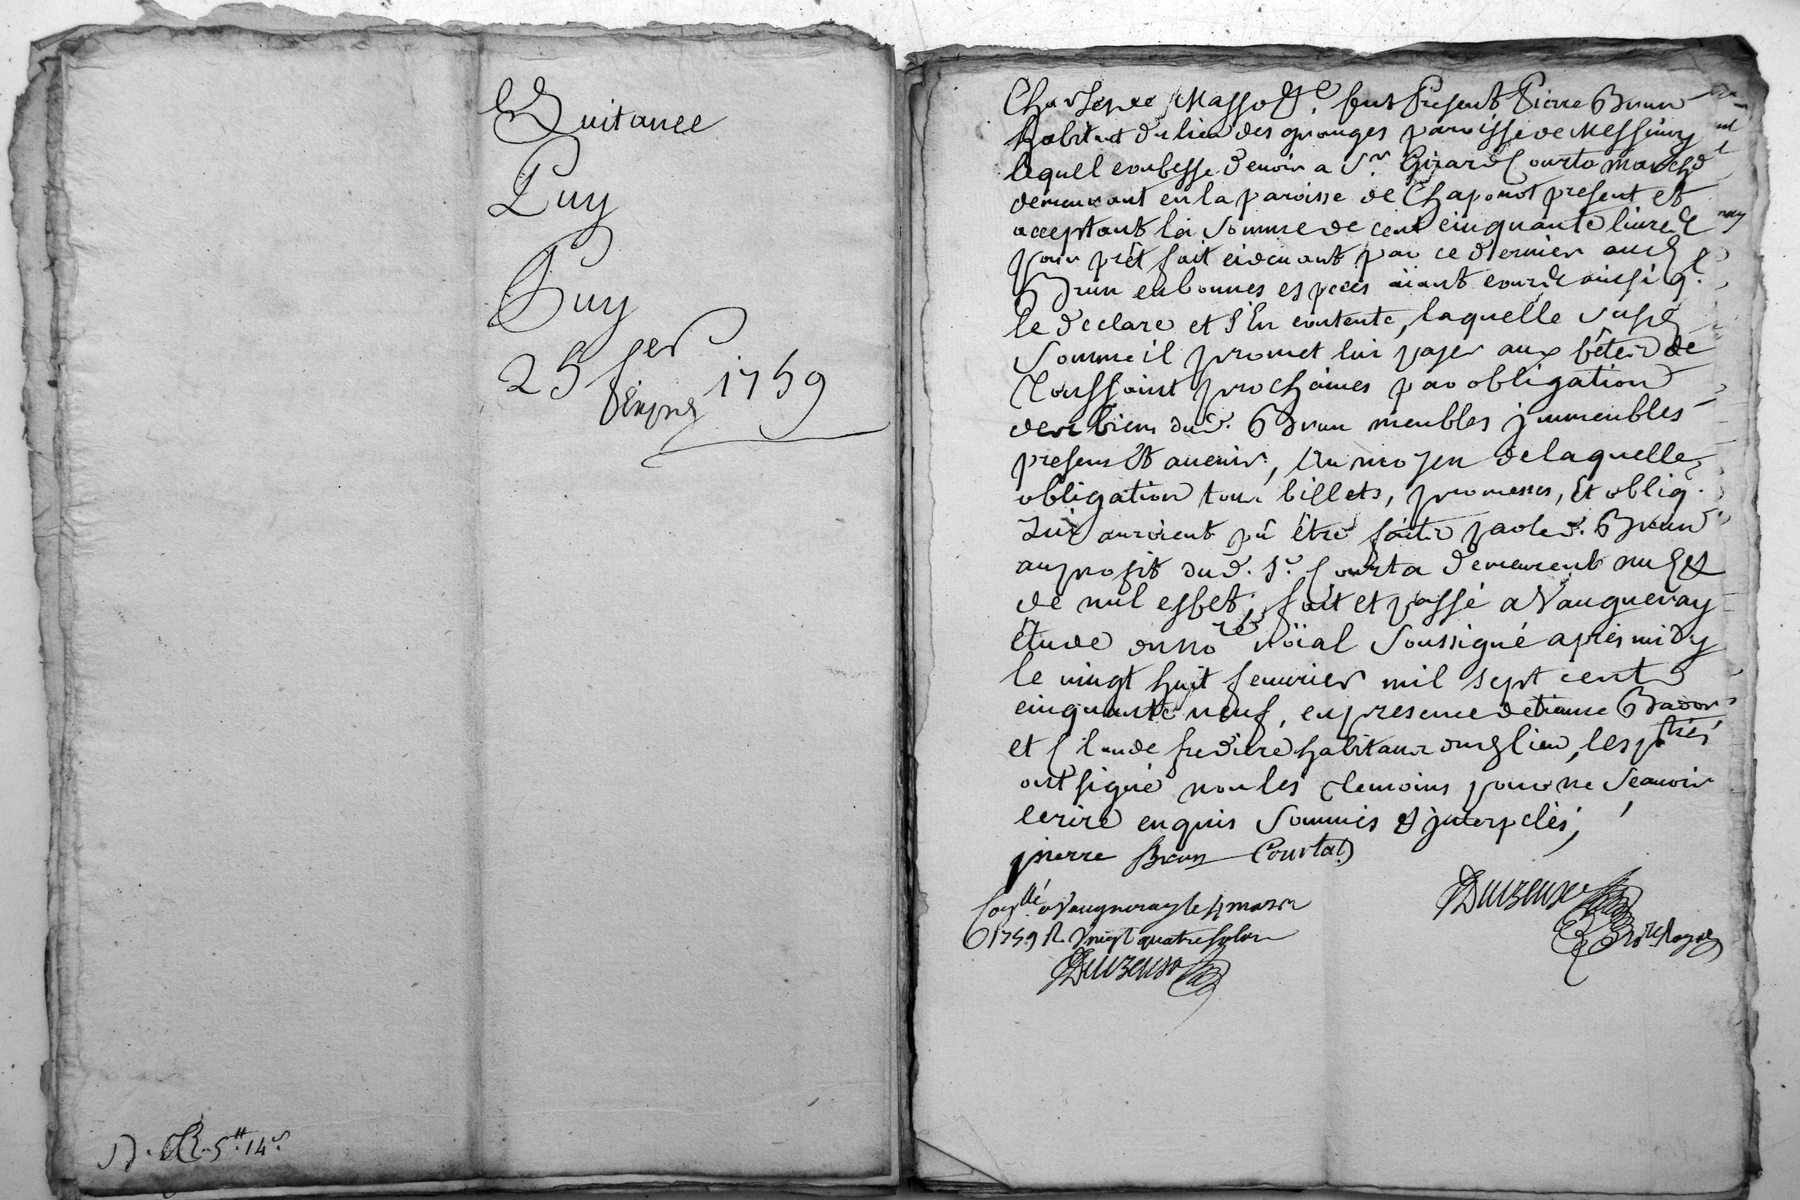 Quitance
Puy
Puy
25 fer
1759
5# 14s
fut Present Pierre Brun
habitant du lieu des granges paroisse de Messimy
lequel confesse devoir a Sr. Girard Courta march.d
demeurant en la paroisse de Chaponot present et
acceptant la somme de cent cinquante livres
pour prêt fait ci devant par ce dernier aud.
Brun en bonnes especes aïant cours ainsi q.l
le declare et s'En contente, laquelle susd.
somme il promet lui païer aux fêtes de
Toussaint prochaines par obligation
des biens dud. Brun meubles jmmeubles
presens Et avenir, Au moyen de laquelle
obligation tous billets, promesses, Et oblig.
qui auroient pû être faits par led. Brun
au profit dud. Sr. Courta demeurent nuls et
de nul effet, fait et passé a Vaugneray
Etude du no.re roïal soussigné après midy
le vingt huit fevrier mil sept cent
cinquante neuf, en presence detienne
et Claude habitans dud. lieu, les p.tiés
ont signé non les temoins pour ne sçavoir
ecrire enquis sommés et jnterpelés,
pierre Brun Courtat
Con.llé a Vaugneray le 4 mars
1759 R. Vingt quatre sols